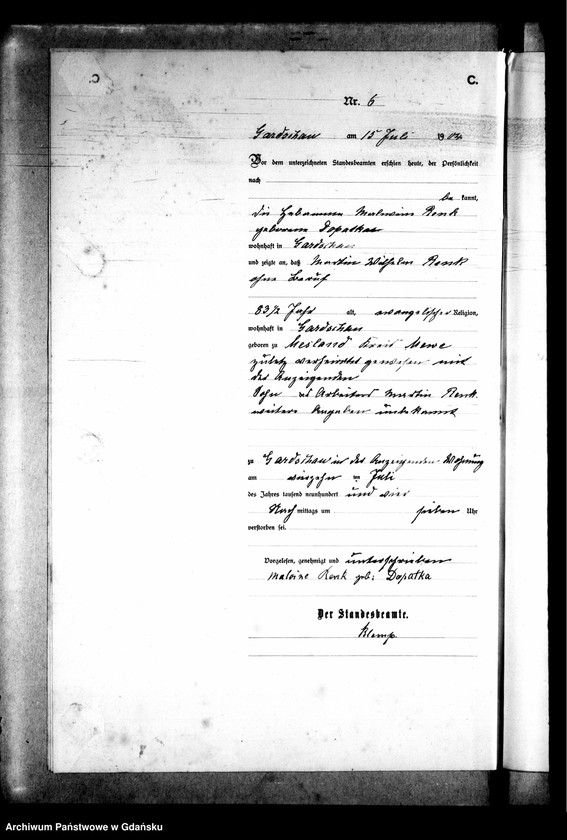 C.
Nr. 6
Gardschau am 15 Juli 1904
Vor dem unterzeichneten Standesbeamten erschien heute, der Persönlichkeit
nach
be kannt,
die Hebamme Malwine Renk
geborene Dopatka
wohnhaft in Gardschau
und zeigte an, daß Martin Wilhelm Renk
ohne Beruf
83 1/2 Jahr alt, evangelischer Religion,
wohnhaft in Gardschau
geboren zu Mesland Kreis Mewe
zuletzt verheirathet gewesen mit
der Anzeigenden
Sohn des Arbeiters Martin Renk.
weitere Angaben unbekannt
zu Gardschau in der Anzeigenden Wohnung
am vierzehn ten Juli
des Jahres tausend neunhundert und vier
Nach mittags um sieben Uhr
verstorben sei.
Vorgelesen, genehmigt und unterschrieben
Malvine Renk geb: Dopatka
Der Standesbeamte.
Klemp
Archiwum Państwowe w Gdańsku